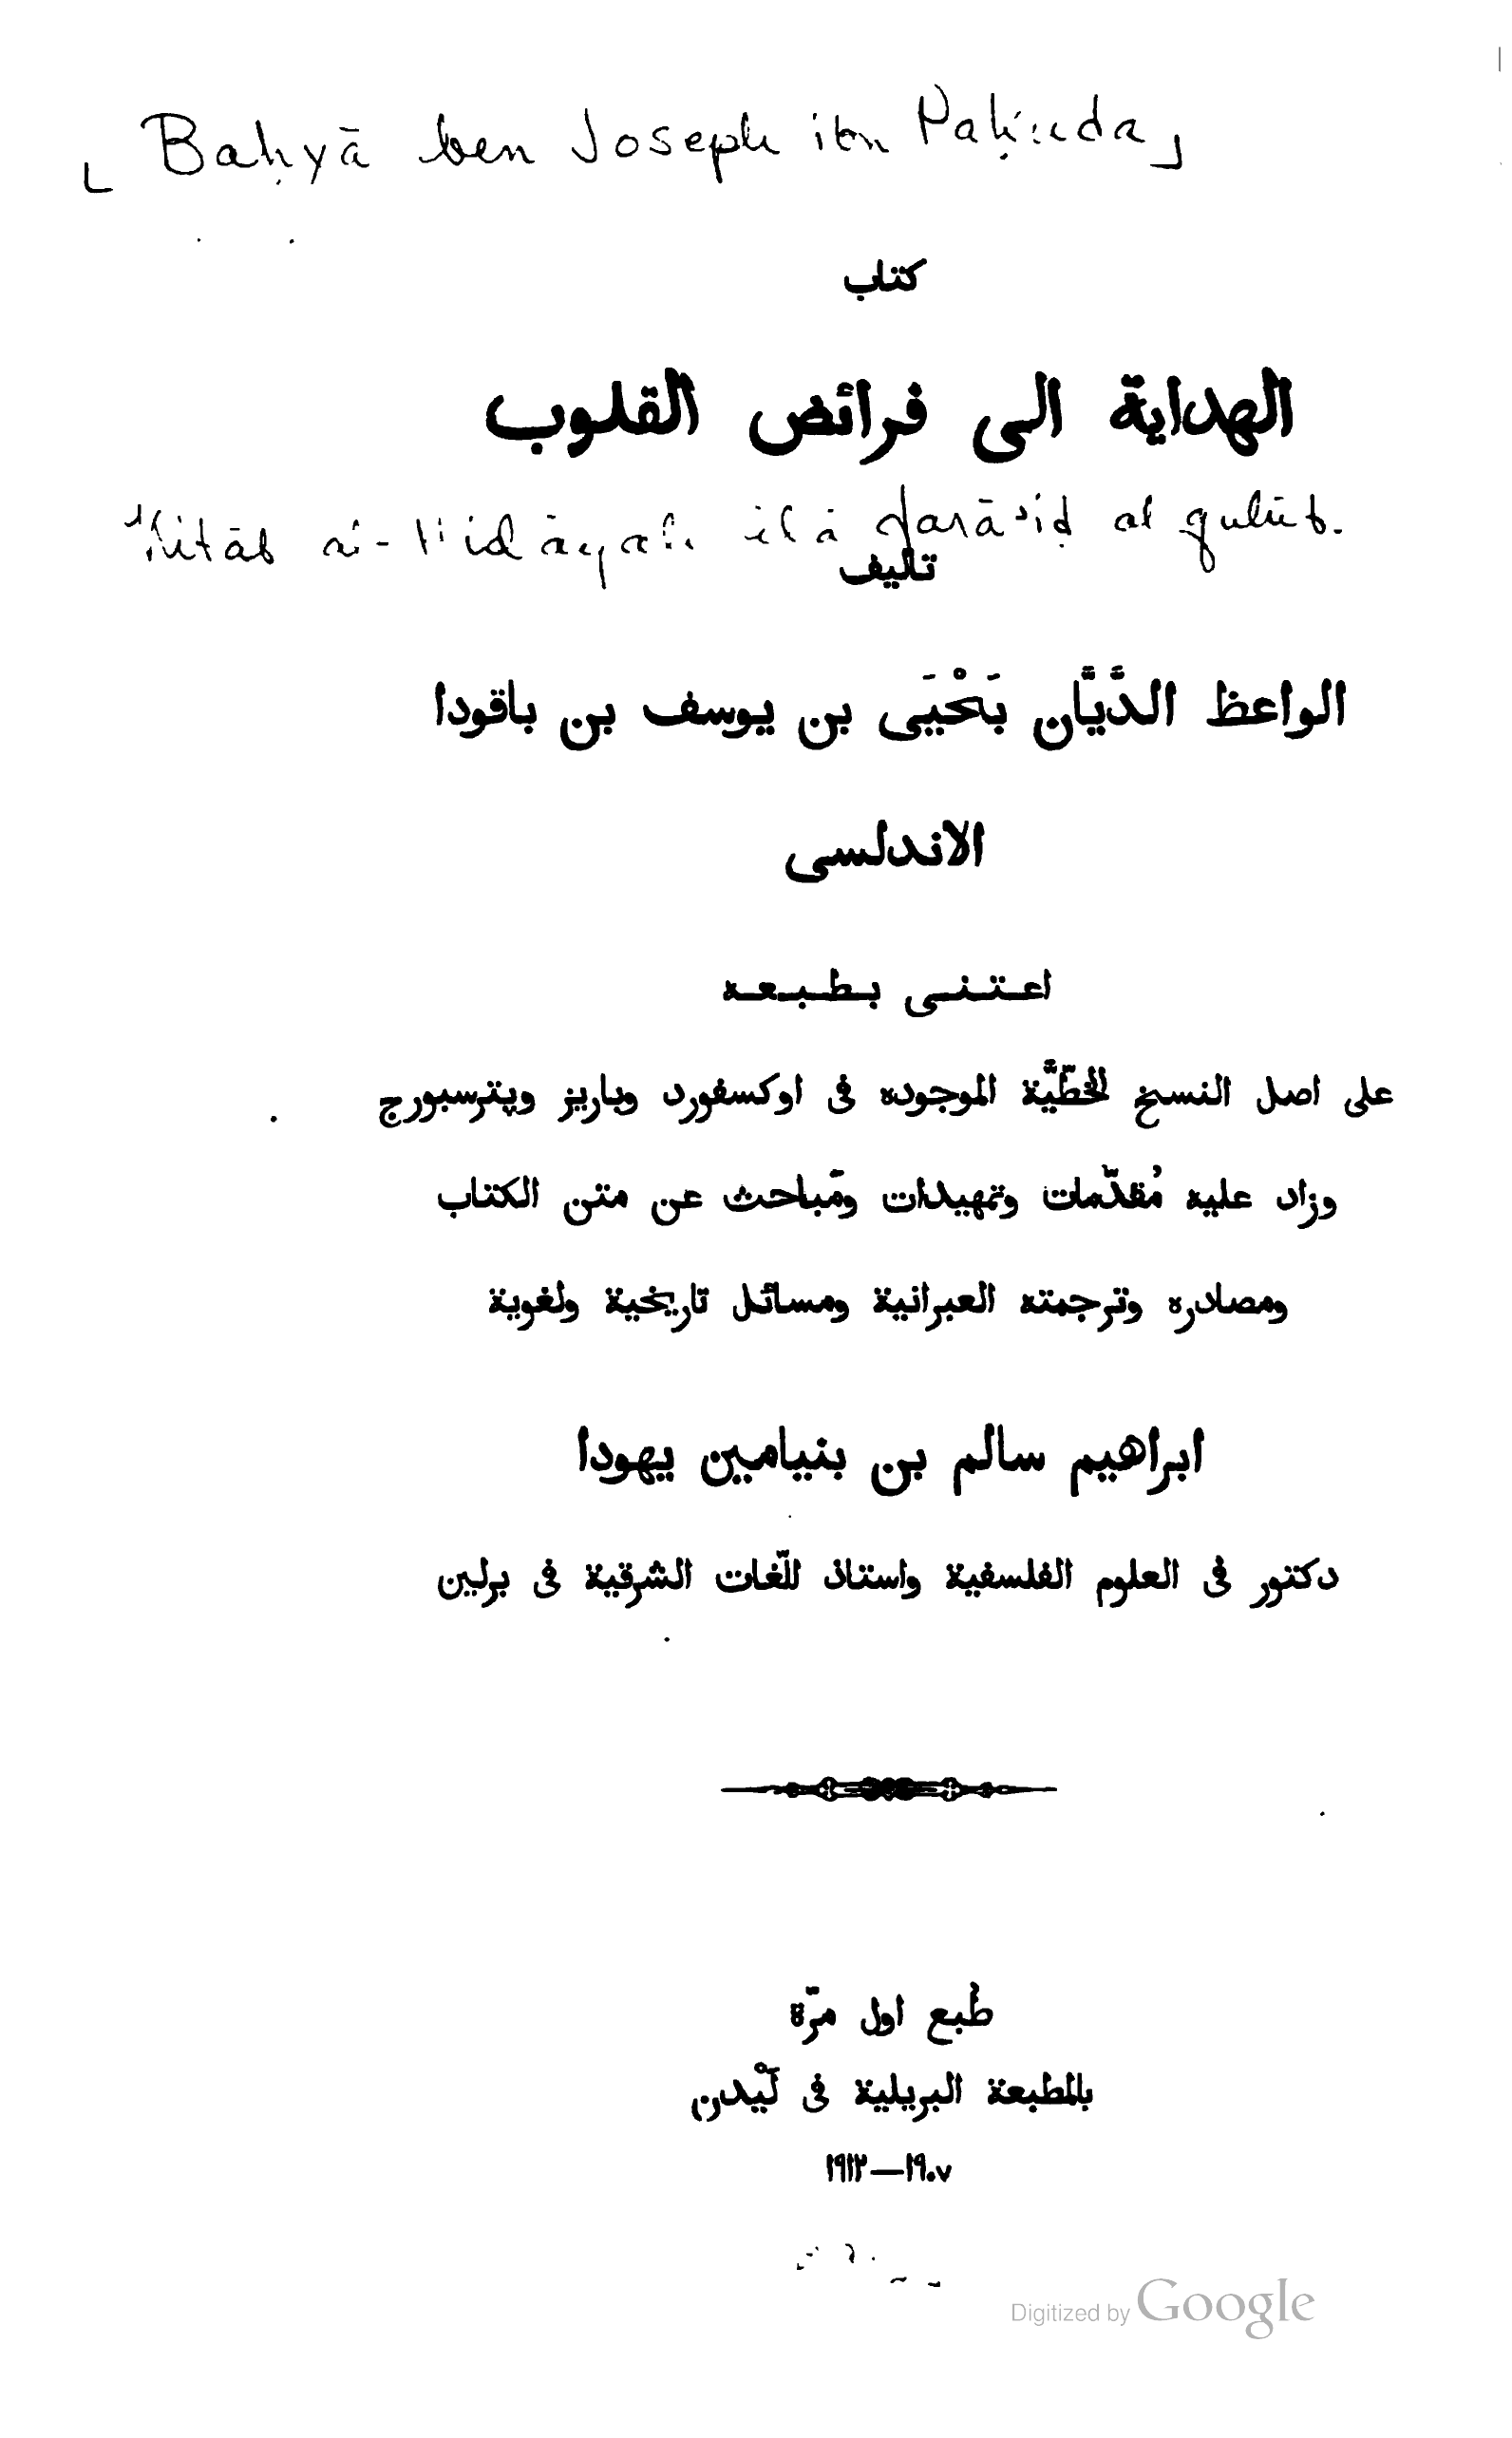 [Baḥyā ben Joseph ibn Paḳuda]
كتاب
الهداية الى فرائض القلوب
Kitāb al-Hidāyah ilā farā'iḍ al qulūb.
تاليف
الواعظ الدَّيَّان بَحْيَى بن يوسف بن باقودا
الاندلسى
اعتنى بطبعه
على اصل النسخ الخطّيَّة الموجوده فى اوكسفورد وباريز وپترسبورج
وزاد عليه مُقدّمات وتمهيدات ومَباحث عن متن الكتاب
ومصادره وترجمته العبرانية ومسائل تاريخية ولغوية
ابراهيم سالم بن بنيامين يهودا
دكتور فى العلوم الفلسفية واستاذ للّغات الشرقية فى برلين
طُبع اول مرّة
بالمطبعة البريلية فى لَيْدن
١٩٠٧—١٩١٢
Digitized by Google